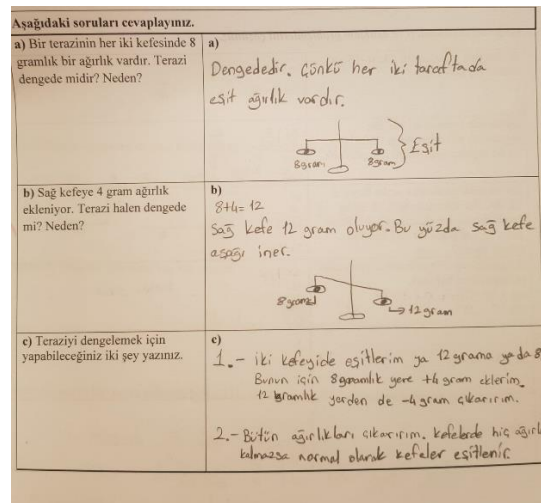 Aşağıdaki soruları cevaplayınız.
a) Bir terazinin her iki kefesinde 8
gramlık bir ağırlık vardır. Terazi
dengede midir? Neden?
a)
Dengededir. Çünkü her iki taraftada
eşit ağırlık vardır.
8gram 8gram } Eşit
b) Sağ kefeye 4 gram ağırlık
ekleniyor. Terazi halen dengede
mi? Neden?
b)
8+4=12
Sağ kefe 12 gram oluyor. Bu yüzda sağ kefe
aşağı iner.
→12gram
c) Teraziyi dengelemek için
yapabileceğiniz iki şey yazınız.
c)
1.- iki kefeyide eşitlerim ya 12 grama ya da 8
Bunun için 8 gramlık yere +4 gram eklerim.
12 gramlık yerden de -4 gram çıkarırım.
2.- Bütün ağırlıkları çıkarırım. kefelerde hiç ağırl
kalmazsa normal olarak kefeler eşitlenir.